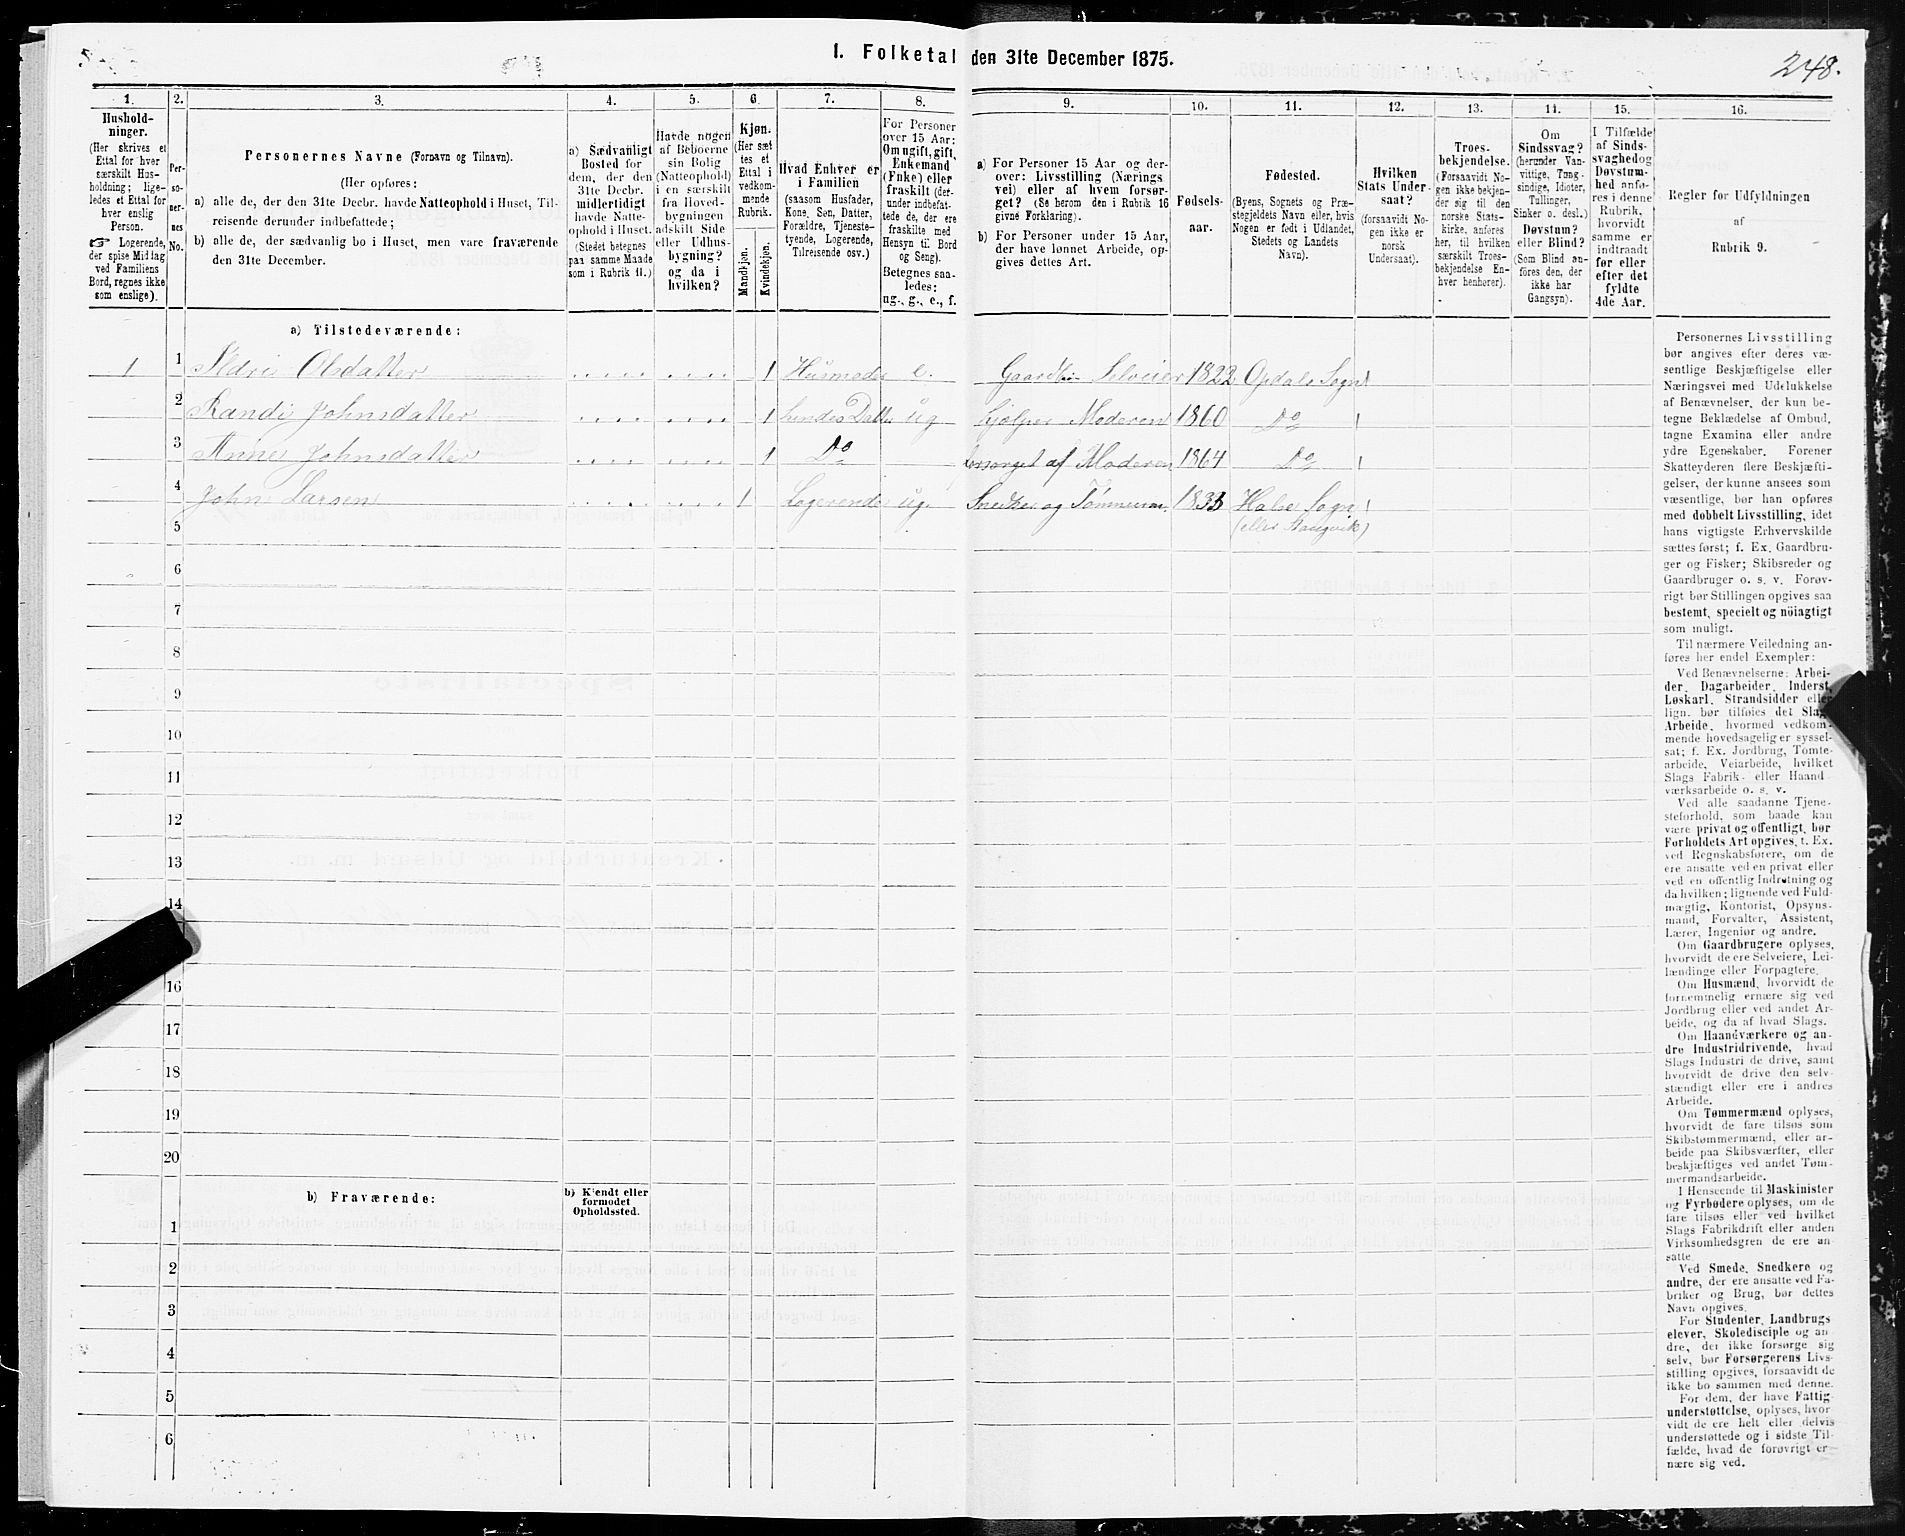 1. Folketal den 31te December 1875.
248.
1.
2.
3.
4.
5.
6.
7.
8.
9.
10.
11.
12.
13.
14.
15.
16.
Hushold-
ninger.
(Her skrives et
Ettal for hver
særskilt Hus-
holdning; lige-
ledes et Ettal for
hver enslig
Person.
☞ Logerende,
der spise Middag
ved Familiens
Bord, regnes ikke
som enslige).
Per-
so-
ner-
nes
No.
Personernes Navne (Fornavn og Tilnavn).
(Her opføres:
a) alle de, der den 31te Decbr. havde Natteophold i Huset, Til-
reisende derunder indbefattede;
b) alle de, der sædvanlig bo i Huset, men vare fraværende
den 31te December.
a) Sædvanligt
Bosted for
dem, der den
31te Decbr.
midlertidigt
havde Natte-
ophold i Huset.
(Stedet betegnes
paa samme Maade
som i Rubrik 11.)
Havde nogen
af Beboerne
sin Bolig
(Natteophold)
i en særskilt
fra Hoved-
bygningen
adskilt Side
eller Udhus-
bygning?
og da i
hvilken?
Kjøn.
(Her sæt
tes et
Ettal i
vedkom-
mende
Rubrik.
Mandkjøn.
Kvindekjøn.
Hvad Enhver er
i Familien
(saasom Husfader,
Kone, Søn, Datter,
Forældre, Tjeneste-
tyende, Logerende,
Tilreisende osv.)
For Personer
over 15 Aar:
Om ugift, gift,
Enkemand
(Enke) eller
fraskilt (der-
under indbefat-
tede de, der ere
fraskilte med
Hensyn til Bord
og Seng).
Betegnes saa-
ledes:
ug., g., e., f.
a) For Personer 15 Aar og der-
over: Livsstilling (Nærings
vei) eller af hvem forsør-
get? (Se herom den i Rubrik 16
givne Forklaring).
b) For Personer under 15 Aar,
der have lønnet Arbeide, op-
gives dettes Art.
Fødsels-
aar.
Fødested.
(Byens, Sognets og Præ-
stegjeldets Navn eller, hvis
Nogen er født i Udlandet,
Stedets og Landets
Navn).
Hvilken
Stats Under-
saat?
(forsaavidt No-
gen ikke er
norsk
Undersaat).
Troes-
bekjendelse.
(Forsaavidt No-
gen ikke bekjen-
der sig til den
norske Stats-
kirke, anføres
her, til hvilken
særskilt Troes-
bekjendelse En-
hver henhører).
Om
Sindssvag?
(herunder Van-
vittige, Tung-
sindige, Idioter,
Tullinger,
Sinker o. desl.)
Døvstum?
eller Blind?
(Som Blind an-
føres den, der
ikke har
Gangsyn).
I Tilfælde
af Sinds-
svaghed og
Døvstum-
hed anfø-
res i denne
Rubrik,
hvorvidt
samme er
indtraadt
før eller
efter det
fyldte
4de Aar.
Regler for Udfyldningen
af
Rubrik 9.
a) Tilstedeværende:
1 1 Ildri Olsdatter 1 Husmoder e. Gaardbr. Selveier 1822 Opdals Sogn
2 Randi Johnsdatter 1 hendes Datter ug hjælper Moderen 1860 Do
3 Anne Johnsdatter 1 Do forsørget af Moderen 1864 Do
4 John Larsen 1 Logerende ug. Snedker og Tømmerm. 1833 Halse Sogn
5 (eller Stangvik)
6
7
8
9
10
11
12
13
14
16
17
18
19
20
b) Fraværende:
b) Kjendt eller
formodet
Opholdssted.
1
2
3
4
5
6
Personernes Livsstilling
bør angives efter deres væ-
sentlige Beskjæftigelse eller
Næringsvei med Udelukkelse
af Benævnelser, der kun be-
tegne Beklædelse af Ombud,
tagne Examina eller andre
ydre Egenskaber. Forener
Skatteyderen flere Beskjæfti-
gelser, der kunne ansees som
væsentlige, bør han opføres
med dobbelt Livsstilling, idet
hans vigtigste Erhvervskilde
sættes først; f. Ex. Gaardbru-
ger og Fisker; Skibsreder og
Gaardbruger o. s. v. Forøv-
rigt bør Stillingen opgives saa
bestemt, specielt og nöiagtigt
som muligt.
Til nærmere Veiledning an-
føres her endel Exempler:
Ved Benævnelserne: Arbei-
der, Dagarbeider, Inderst,
Løskarl, Strandsidder eller
lign. bør tilføies det Slags
Arbeide, hvormed vedkom-
mende hovedsagelig er syssel-
sat; f. Ex. Jordbrug, Tomte-
arbeide, Veiarbeide, hvilket
Slags Fabrik- eller Haand-
værksarbeide o. s. v.
Ved alle saadanne Tjene-
steforhold, som baade kan
være privat og offentligt, bør
Forholdets Art opgives, f. Ex.
ved Regnskabsførere, om de
ere ansatte ved en privat eller
ved en offentlig Indretning og
da hvilken; lignende ved Fuld-
mægtig, Kontorist, Opsyns-
mand, Forvalter, Assistent,
Lærer, Ingeniør og andre.
Om Gaardbrugere oplyses,
hvorvidt de ere Selveiere, Lei-
lændinge eller Forpagtere.
Om Husmænd, hvorvidt de
fornemmelig ernære sig ved
Jordbrug eller ved andet Ar-
beide, og da af hvad Slags.
Om Haandværkere og an-
dre Industridrivende, hvad
Slags Industri de drive, samt
hvorvidt de drive den selv-
stændigt eller ere i andres
Arbeide.
Om Tømmermænd oplyses,
hvorvidt de fare tilsøs som
Skibstømmermænd, eller ar-
beide paa Skibsværfter, eller
beskjæftiges ved andet Tøm-
mermandsarbeide.
I Henseende til Maskinister
og Fyrbødere oplyses, om de
fare tilsøs eller ved hvilket
Slags Fabrikdrift eller anden
Virksomhedsgren de ere an-
satte.
Ved Smede, Snedkere og
andre, der ere ansatte ved Fa-
briker og Brug, bør dettes
Navn opgives.
For Studenter, Landbrugs
elever, Skoledisciple og an-
dre, der ikke forsørge sig
selv, bør Forsørgerens Livs-
stilling opgives, forsaavidt de
ikke bo sammen med denne.
For dem, der have Fattig-
understøttelse, oplyses, hvor-
vidt de ere helt eller delvis
understøttede og i sidste Til-
fælde, hvad de forøvrigt er-
nære sig ved.